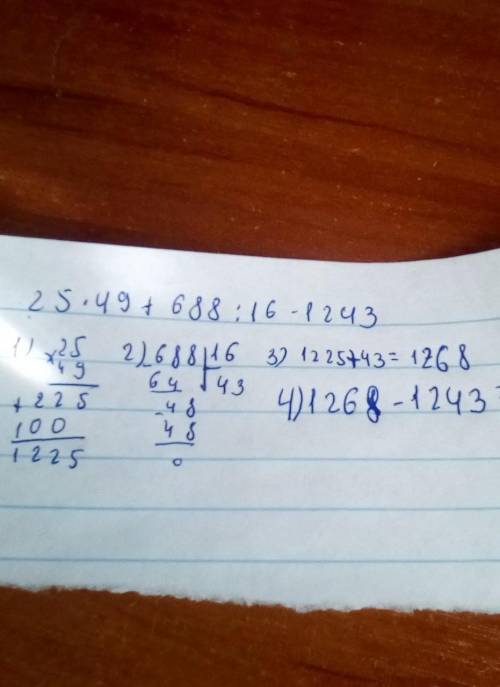 25·49+688:16-1243
1) ×25
49
+225
100
1225
2) 688 16
64 43
-48
48
0
3) 1225+43=1268
4) 1268-1243=